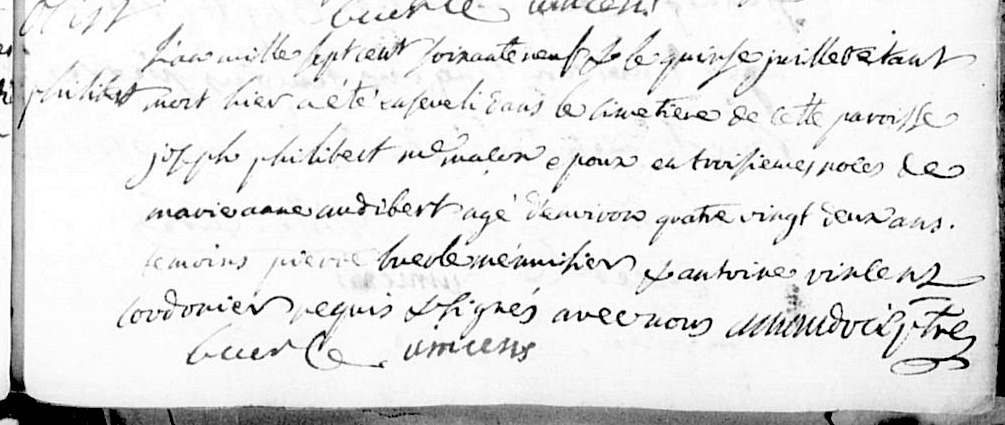 L'an mille sept cent soixante neuf & le quinse juillet etant
philibert mort hier a été enseveli dans le cimetiere de cette paroisse
joseph philibert me maçon epoux en troisiemes noces de
marie anne audibert agé d'environ quatre vingt deux ans.
temoins pierre buerle menuisier & antoine vincent
cordonier requis & signés avec nous ptre
buerle vincens